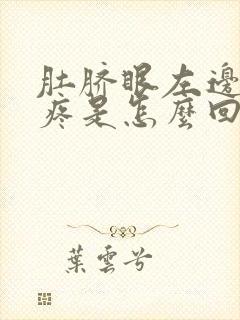 肚脐眼左邊
疼是怎麼回
葉雲兮